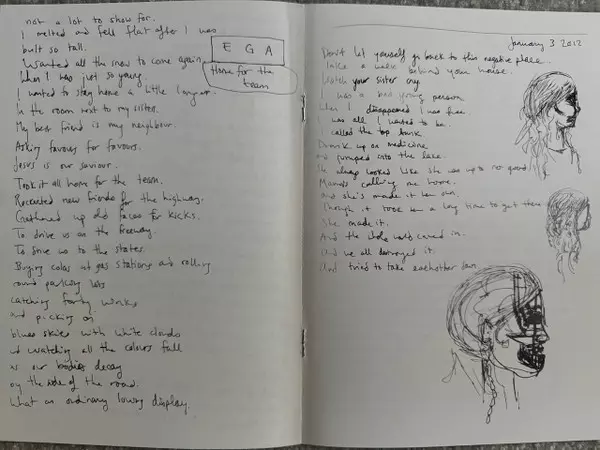 not a lot to show for.
I melted and fell flat after I was
built so tall.
Wanted all the snow to come again
When I was just so young.
I wanted to stay home a little longer.
In the room next to my sister.
My best friend is my neighbour.
Asking favours for favours.
Jesus is our saviour.
Took it all home for the team.
Recruited new friends for the highway.
Gathered up old faces for kicks.
To drive us on the freeway.
To drive us to the states.
Buying colas at gas stations and rolling
round parking lots
catching forty winks
and picking on
blues skies with white clouds
watching all the colours fall
as our bodies decay
by the side of the road.
What an ordinary lovely display.
E G A
Home for the
team
January 3 2012
Don't let yourself go back to this negative place.
Take a walk behind your house.
Watch your sister cry
I was a bad young person
When I disappeared I was free.
I was all I wanted to be
called the top bunk
Drunk up on medicine
and jumped into the lake.
She always looked like she was up to no good.
Mama's calling me home.
and she's made it her own.
Though it took her a long time to get there
She made it.
And the whole world caved in.
And we all destroyed it.
And tried to take eachother down.